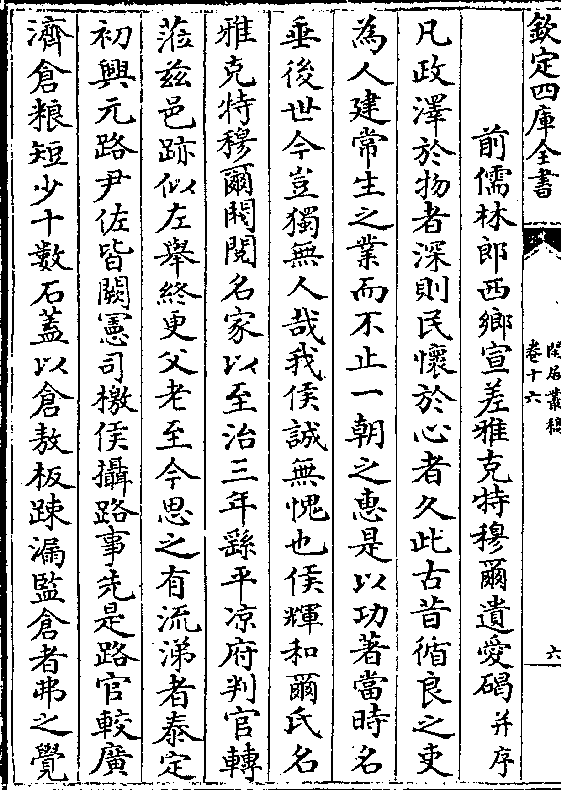 欽定四庫全書
閒居叢稿
卷十六
六
前儒林郎西鄉宣差雅克特穆爾遺愛碣并序
凡政澤於物者深則民懷於心者久此古昔循良之吏
為人建常生之業而不止一朝之惠是以功著當時名
垂後世今豈獨無人哉我侯誠無愧也侯輝和爾氏名
雅克特穆爾閥閱名家以至治三年繇平凉府判官轉
蒞兹邑跡似左舉終更父老至今思之有流涕者泰定
初興元路尹佐皆闕憲司檄侯攝路事先是路官較廣
濟倉粮短少十數石蓋以倉敖板疎漏監倉者弗之覺